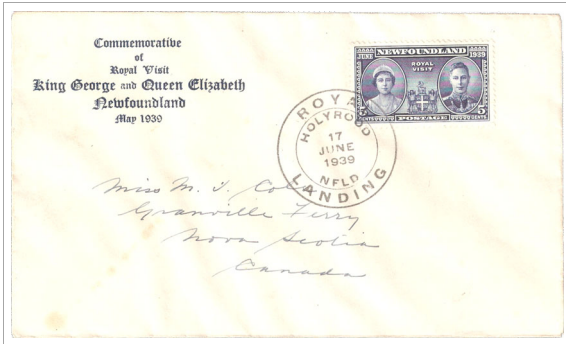 Commemorative
of
Royal Visit
King George and Queen Elizabeth
Newfoundland
May 1939
JUNE NEWFOUNDLAND 1939
ROYAL
VISIT
5 POSTAGE 5
CENTS
ROYAL
HOLYROOD
17
JUNE
1939
NFLD
LANDING
Miss M. I.
Granville Ferry
Nova Scotia
Canada